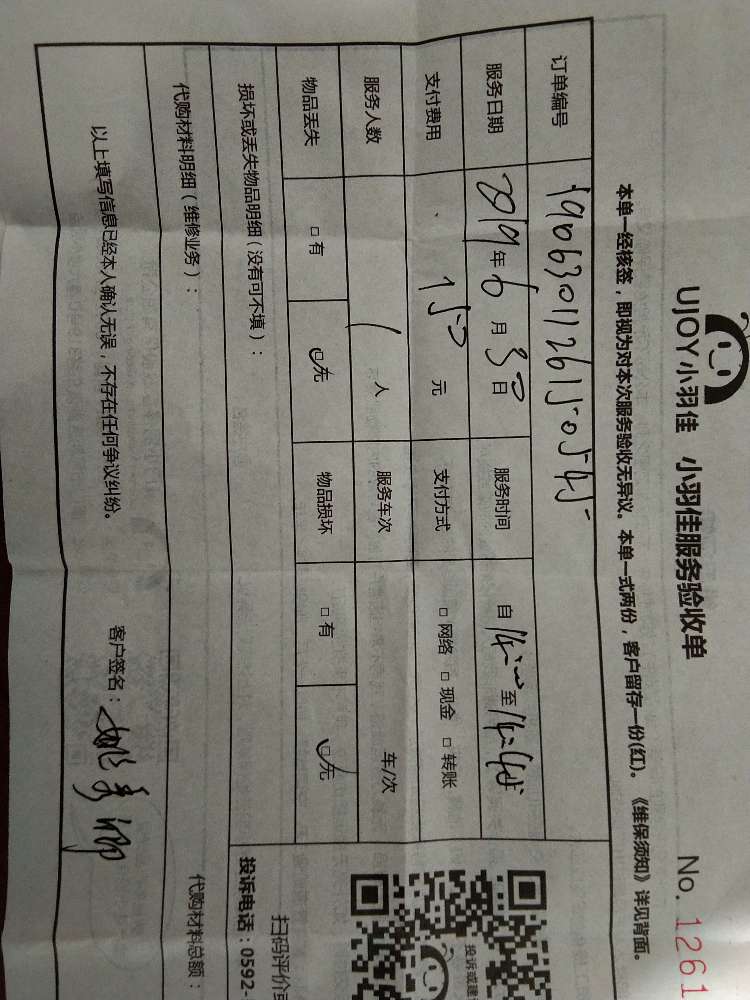 UJOY小羽佳 小羽佳服务验收单 No. 1261
本单一经核签，即视为对本次服务验收无异议。本单一式两份，客户留存一份(红)。《维保须知》详见背面。
订单编号 1906301126150545
服务日期 2019年6月30日 服务时间 自14:00至14:45
支付费用 150元 支付方式 □网络 □现金 □转账
服务人数 1人 服务车次 车/次
物品丢失 □有 □无 物品损坏 □有 □无
损坏或丢失物品明细（没有可不填）：
代购材料明细（维修业务）： 代购材料总额：
以上填写信息已经本人确认无误，不存在任何争议纠纷。 客户签名：姚秀卿
投诉或建
扫码评价或
投诉电话：0592-